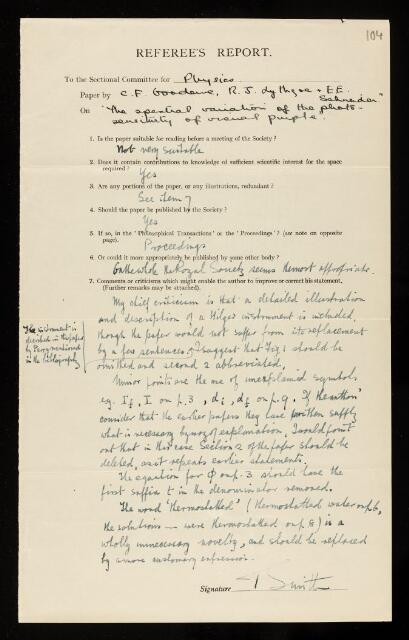 104
REFEREE'S REPORT.
To the Sectional Committee for Physics
Paper by C.F. Goodeve, R.J. Lythgoe & E.E. Schneider
On "The spectral variation of the photo-
sensitivity of visual purple."
1. Is the paper suitable for reading before a meeting of the Society?
Not very suitable
2. Does it contain contributions to knowledge of sufficient scientific interest for the space
required?
Yes
3. Are any portions of the paper, or any illustrations, redundant?
See item 7
4. Should the paper be published by the Society?
Yes
5. If so, in the 'Philosophical Transactions' or the 'Proceedings'? (see note on opposite
page).
Proceedings
6. Or could it more appropriately be published by some other body?
On the whole the Royal Society seems the most appropriate.
7. Comments or criticisms which might enable the author to improve or correct his statement.
(Further remarks may be attached).
My chief criticism is that a detailed illustration
and description of a Hilger instrument is included,
though the paper would not suffer from its replacement
by a few sentences. I suggest that Fig 1 should be
omitted and second 2 abbreviated.
The instrument is
described in the paper
by Perry mentioned
in the bibliography
Minor points are the use of unexplained symbols
e.g. If, I on p.3, on p.9. If the authors
consider that the earlier papers they have written supply
what is necessary by way of explanation, I would point
out that in this case Section 2 of the paper should be
deleted, as it repeats earlier statements.
The equation for φ on p.3 should have the
first suffix t in the denominator removed.
The word 'thermostatted' (thermostatted water on p.6,
the solutions — were thermostatted on p.8) is a
wholly unnecessary novelty, and should be replaced
by a more customary expression.
Signature T Smith